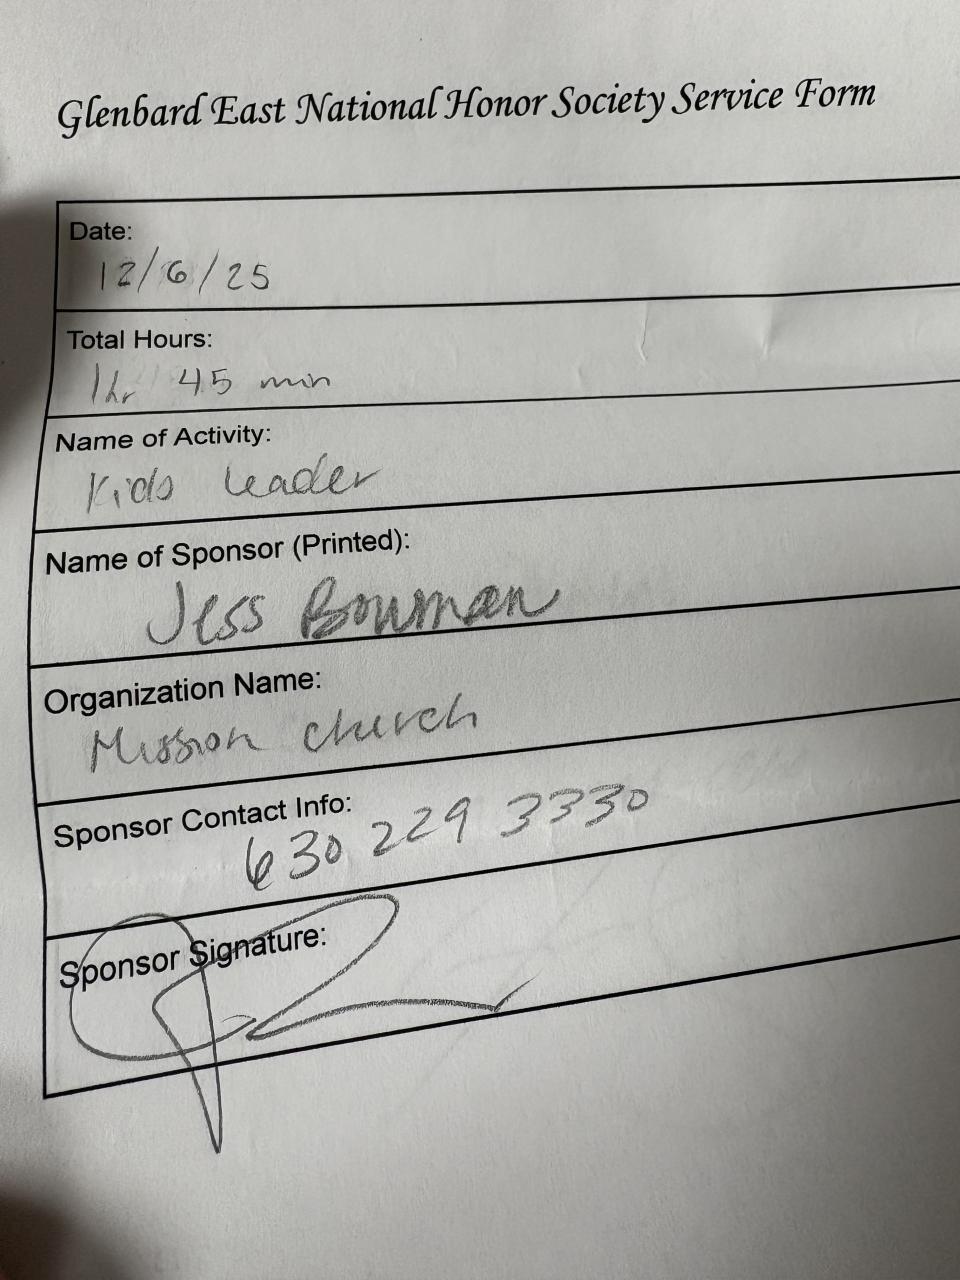 Glenbard East National Honor Society Service Form
Date:
12/6/25
Total Hours:
1hr 45 min
Name of Activity:
Kids Leader
Name of Sponsor (Printed):
Jess Bowman
Organization Name:
Mission church
Sponsor Contact Info:
630 229 3330
Sponsor Signature: